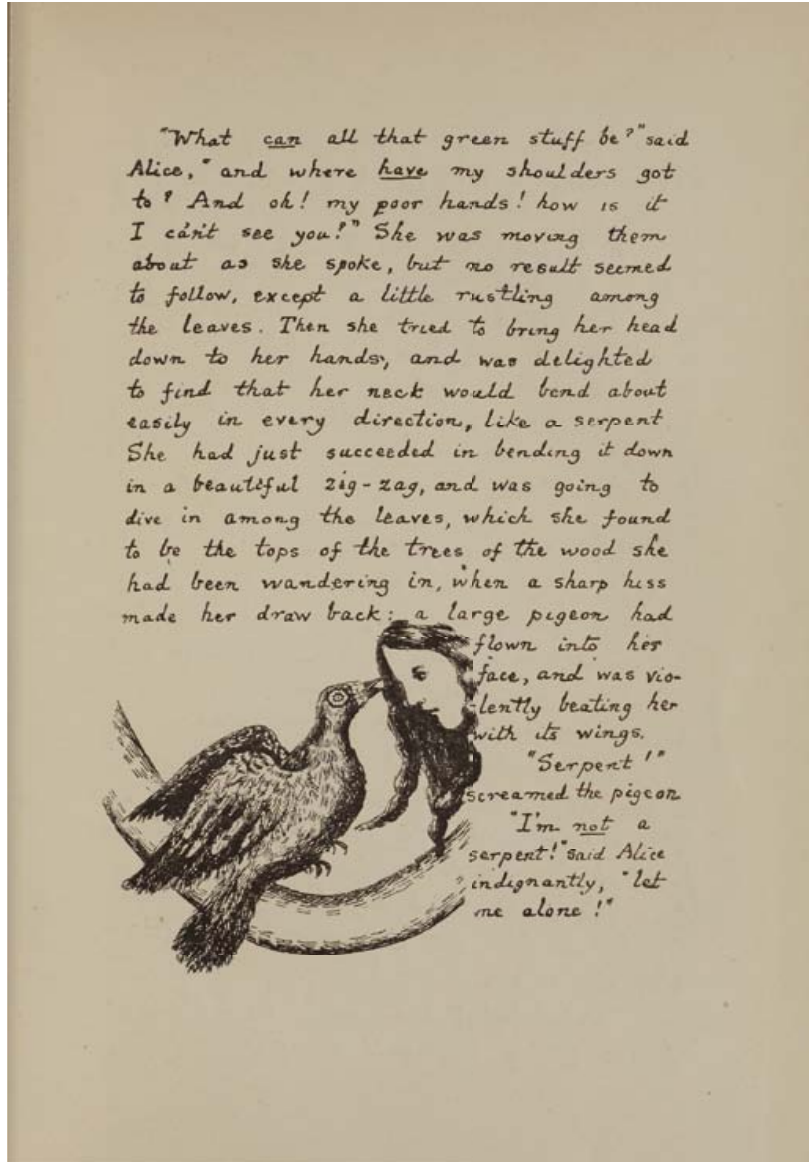 "What can all that green stuff be?" said
Alice, "and where have my shoulders got
to? And oh! my poor hands! how is it
I can't see you?" She was moving them
about as she spoke, but no result seemed
to follow, except a little rustling among
the leaves. Then she tried to bring her head
down to her hands, and was delighted
to find that her neck would bend about
easily in every direction, like a serpent
She had just succeeded in bending it down
in a beautiful zig-zag, and was going to
dive in among the leaves, which she found
to be the tops of the trees of the wood she
had been wandering in, when a sharp hiss
made her draw back: a large pigeon had
flown into her
face, and was vio-
lently beating her
with its wings.
"Serpent!"
screamed the pigeon
"I'm not a
serpent!" said Alice
indignantly, "let
me alone!"